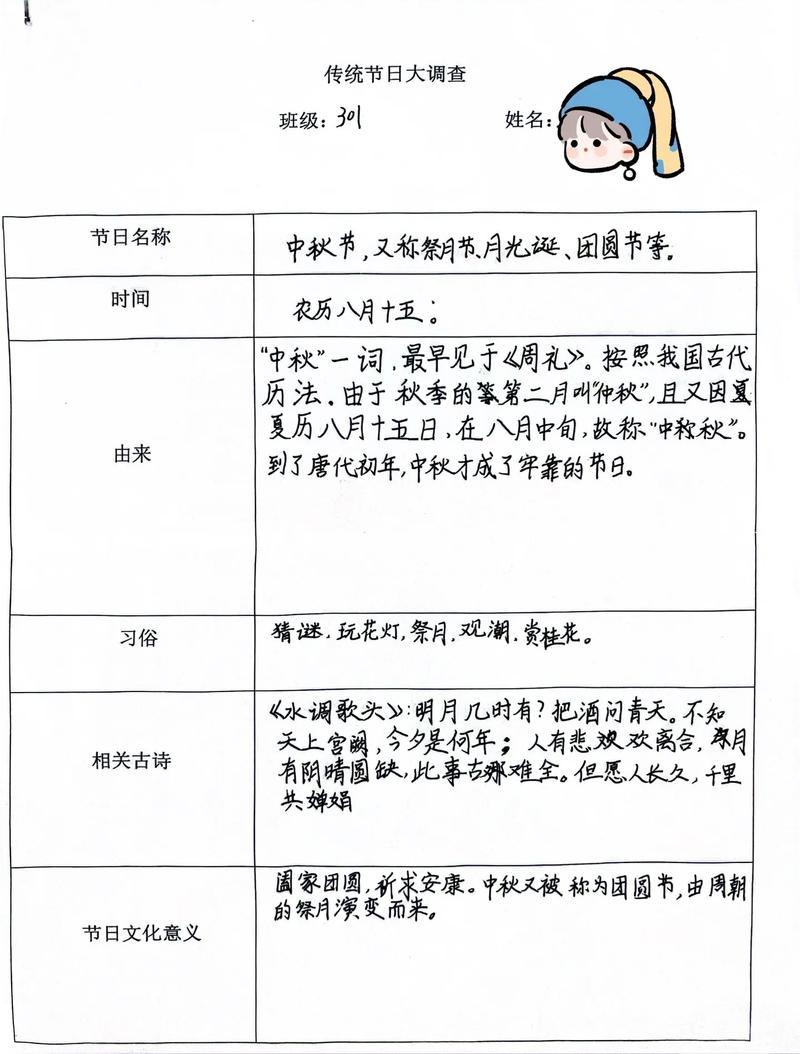 传统节日大调查
班级：301 姓名：
节日名称
中秋节，又称祭月节、月光诞、团圆节等。
时间
农历八月十五；
由来
“中秋”一词，最早见于《周礼》。按照我国古代
历法，由于秋季的第二月叫“仲秋”，且又因夏
夏历八月十五日，在八月中旬，故称“中秋”。
到了唐代初年，中秋才成了牢靠的节日。
习俗
猜谜，玩花灯，祭月，观潮，赏桂花。
相关古诗
《水调歌头》：明月几时有？把酒问青天。不知
天上宫阙，今夕是何年；人有悲欢离合，月
有阴晴圆缺，此事古难全。但愿人长久，千里
共婵娟
节日文化意义
阖家团圆，祈求安康。中秋又被称为团圆节，由周朝
的祭月演变而来。